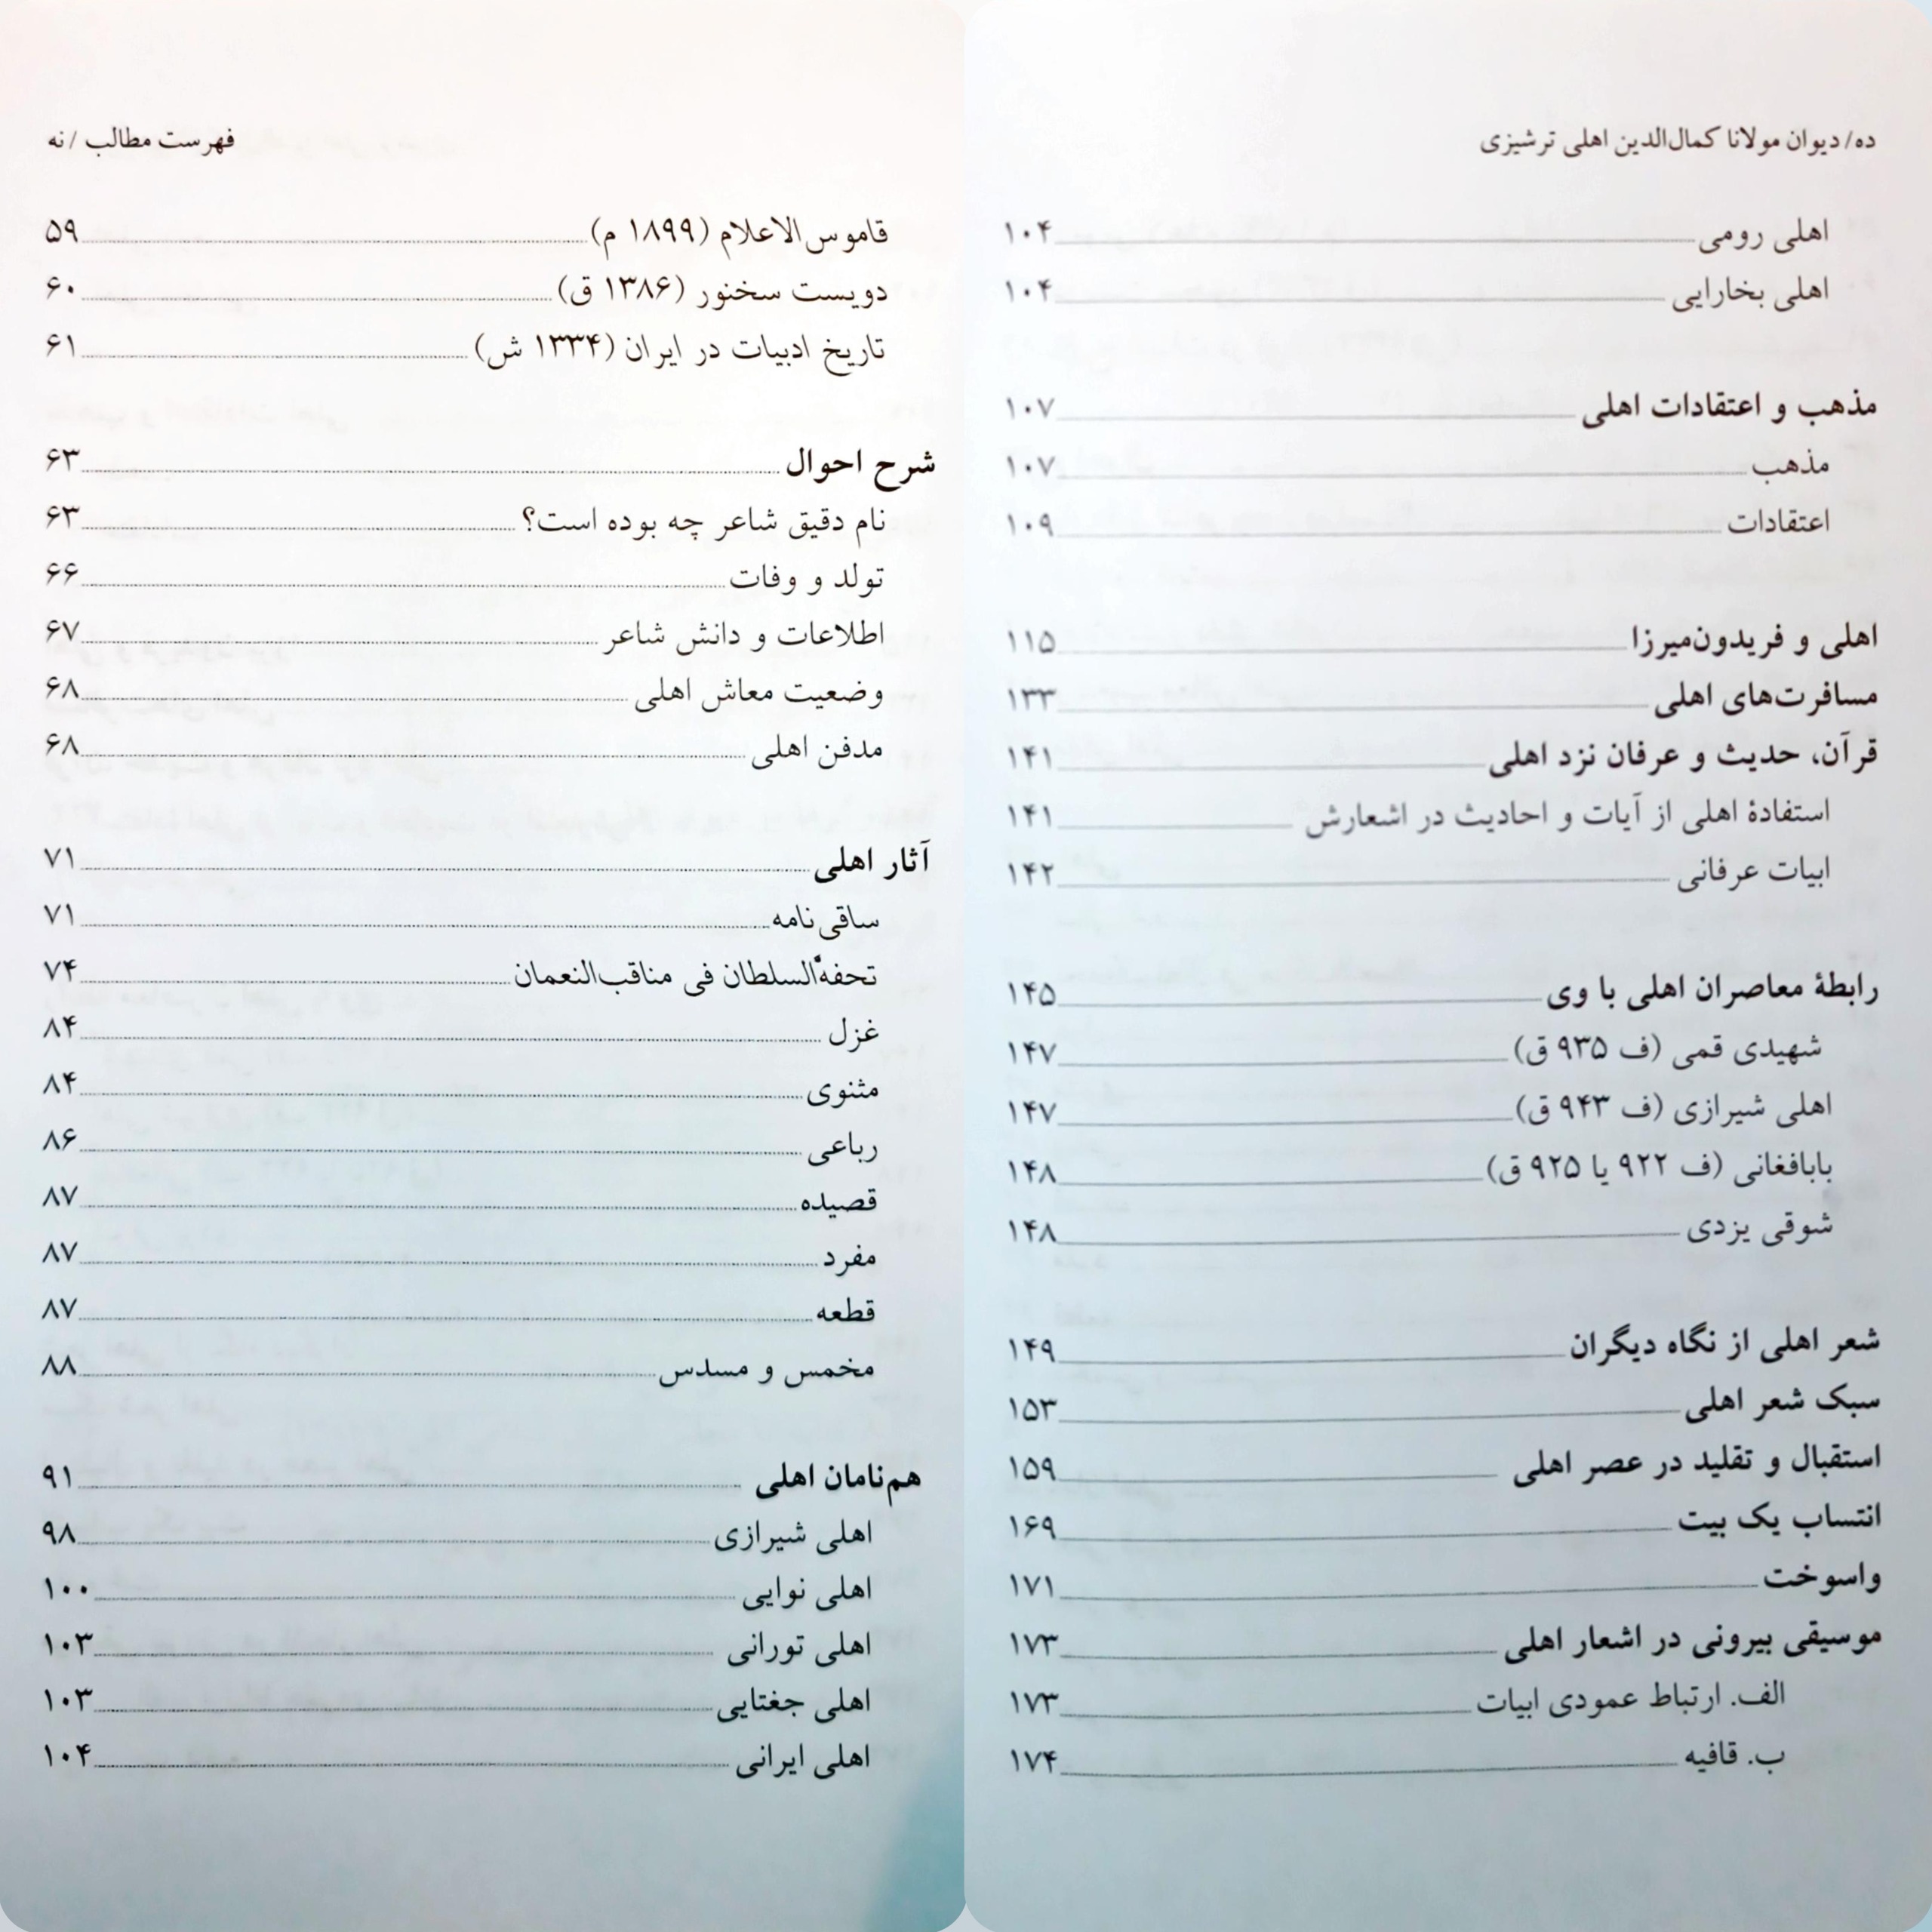 فهرست مطالب / نه
قاموس‌الاعلام (۱۸۹۹ م) ۵۹
دویست سخنور (۱۳۸۶ ق) ۶۰
تاریخ ادبیات در ایران (۱۳۳۴ ش) ۶۱
شرح احوال ۶۳
نام دقیق شاعر چه بوده است؟ ۶۳
تولد و وفات ۶۶
اطلاعات و دانش شاعر ۶۷
وضعیت معاش اهلی ۶۸
مدفن اهلی ۶۸
آثار اهلی ۷۱
ساقی‌نامه ۷۱
تحفةالسلطان فی مناقب‌النعمان ۷۴
غزل ۸۴
مثنوی ۸۴
رباعی ۸۶
قصیده ۸۷
مفرد ۸۷
قطعه ۸۷
مخمس و مسدس ۸۸
هم‌نامان اهلی ۹۱
اهلی شیرازی ۹۸
اهلی نوایی ۱۰۰
اهلی تورانی ۱۰۳
اهلی جغتایی ۱۰۳
اهلی ایرانی ۱۰۴
ده/ دیوان مولانا کمال‌الدین اهلی ترشیزی
اهلی رومی ۱۰۴
اهلی بخارایی ۱۰۴
مذهب و اعتقادات اهلی ۱۰۷
مذهب ۱۰۷
اعتقادات ۱۰۹
اهلی و فریدون‌میرزا ۱۱۵
مسافرت‌های اهلی ۱۳۳
قرآن، حدیث و عرفان نزد اهلی ۱۴۱
استفادهٔ اهلی از آیات و احادیث در اشعارش ۱۴۱
ابیات عرفانی ۱۴۲
رابطهٔ معاصران اهلی با وی ۱۴۵
شهیدی قمی (ف ۹۳۵ ق) ۱۴۷
اهلی شیرازی (ف ۹۴۳ ق) ۱۴۷
بابافغانی (ف ۹۲۲ یا ۹۲۵ ق) ۱۴۸
شوقی یزدی ۱۴۸
شعر اهلی از نگاه دیگران ۱۴۹
سبک شعر اهلی ۱۵۳
استقبال و تقلید در عصر اهلی ۱۵۹
انتساب یک بیت ۱۶۹
واسوخت ۱۷۱
موسیقی بیرونی در اشعار اهلی ۱۷۳
الف. ارتباط عمودی ابیات ۱۷۳
ب. قافیه ۱۷۴